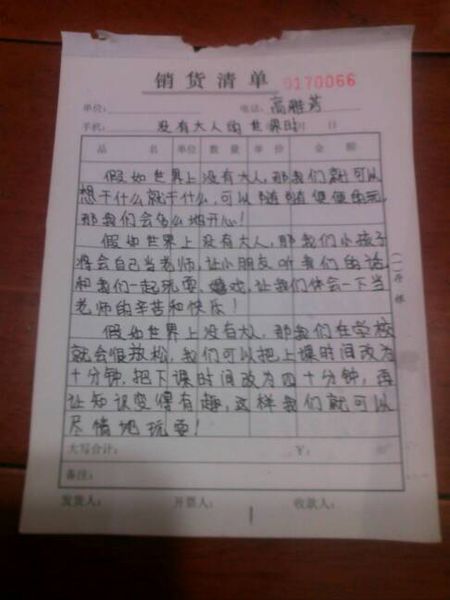 销货清单 0170066
单位: 电话: 高雅芳
手机: 没有大人的世界时 日
品 名 单位 数量 单价 金额
假如世界上没有大人,那我们就可以
想干什么就干什么,可以随随便便的玩,
那我们会多么地开心!
假如世界上没有大人,那我们小孩子
将会自己当老师,让小朋友听我们的话,
和我们一起玩耍、嬉戏,让我们体会一下当
老师的辛苦和快乐!
假如世界上没有大人,那我们在学校
就会很放松,我们可以把上课时间改为
十分钟,把下课时间改为四十分钟,再
让知识变得有趣,这样我们就可以
尽情地玩耍!
大写合计: ¥:
备注:
发货人: 开票人: 收款人: